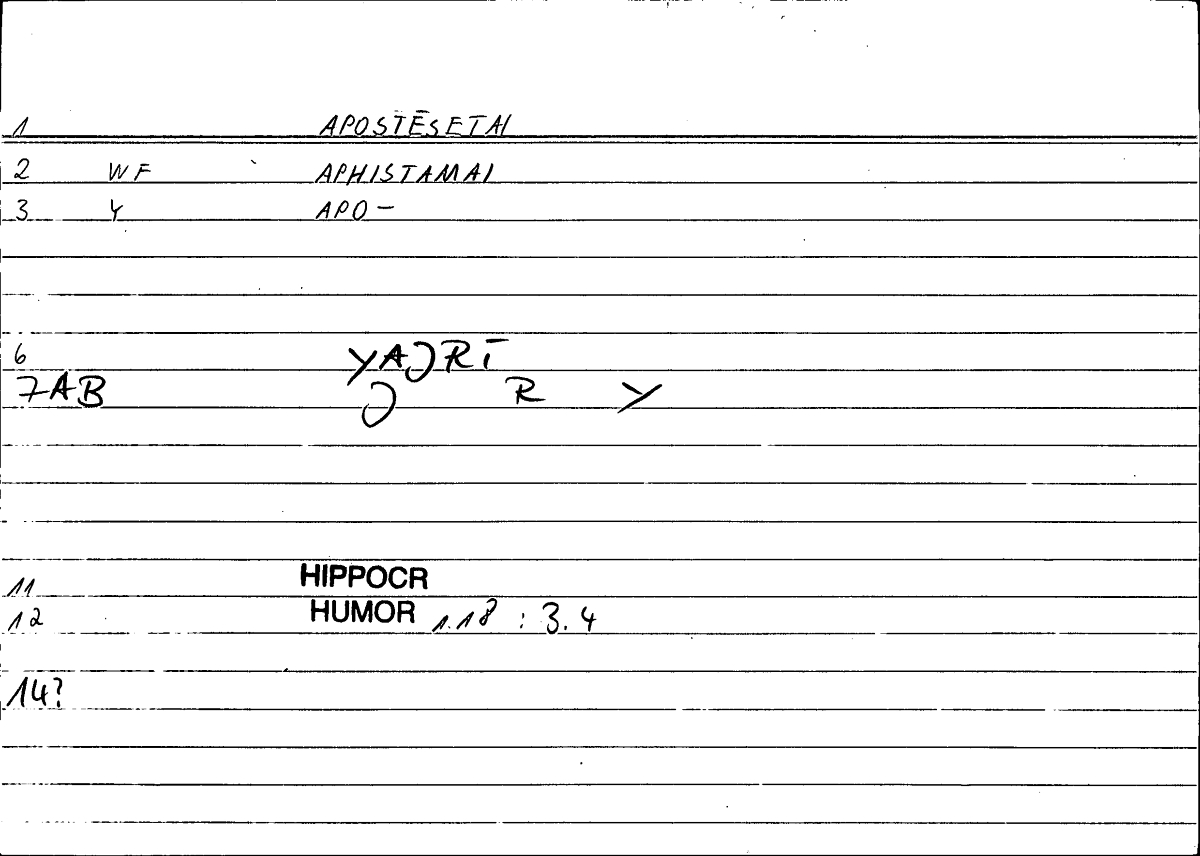 1 APOSTĒSETAI
2 WF APHISTAMAI
3 4 APO-
6 YAJRĪ
7AB J R Y
11 HIPPOCR
12 HUMOR 1.18 : 3.4
14?